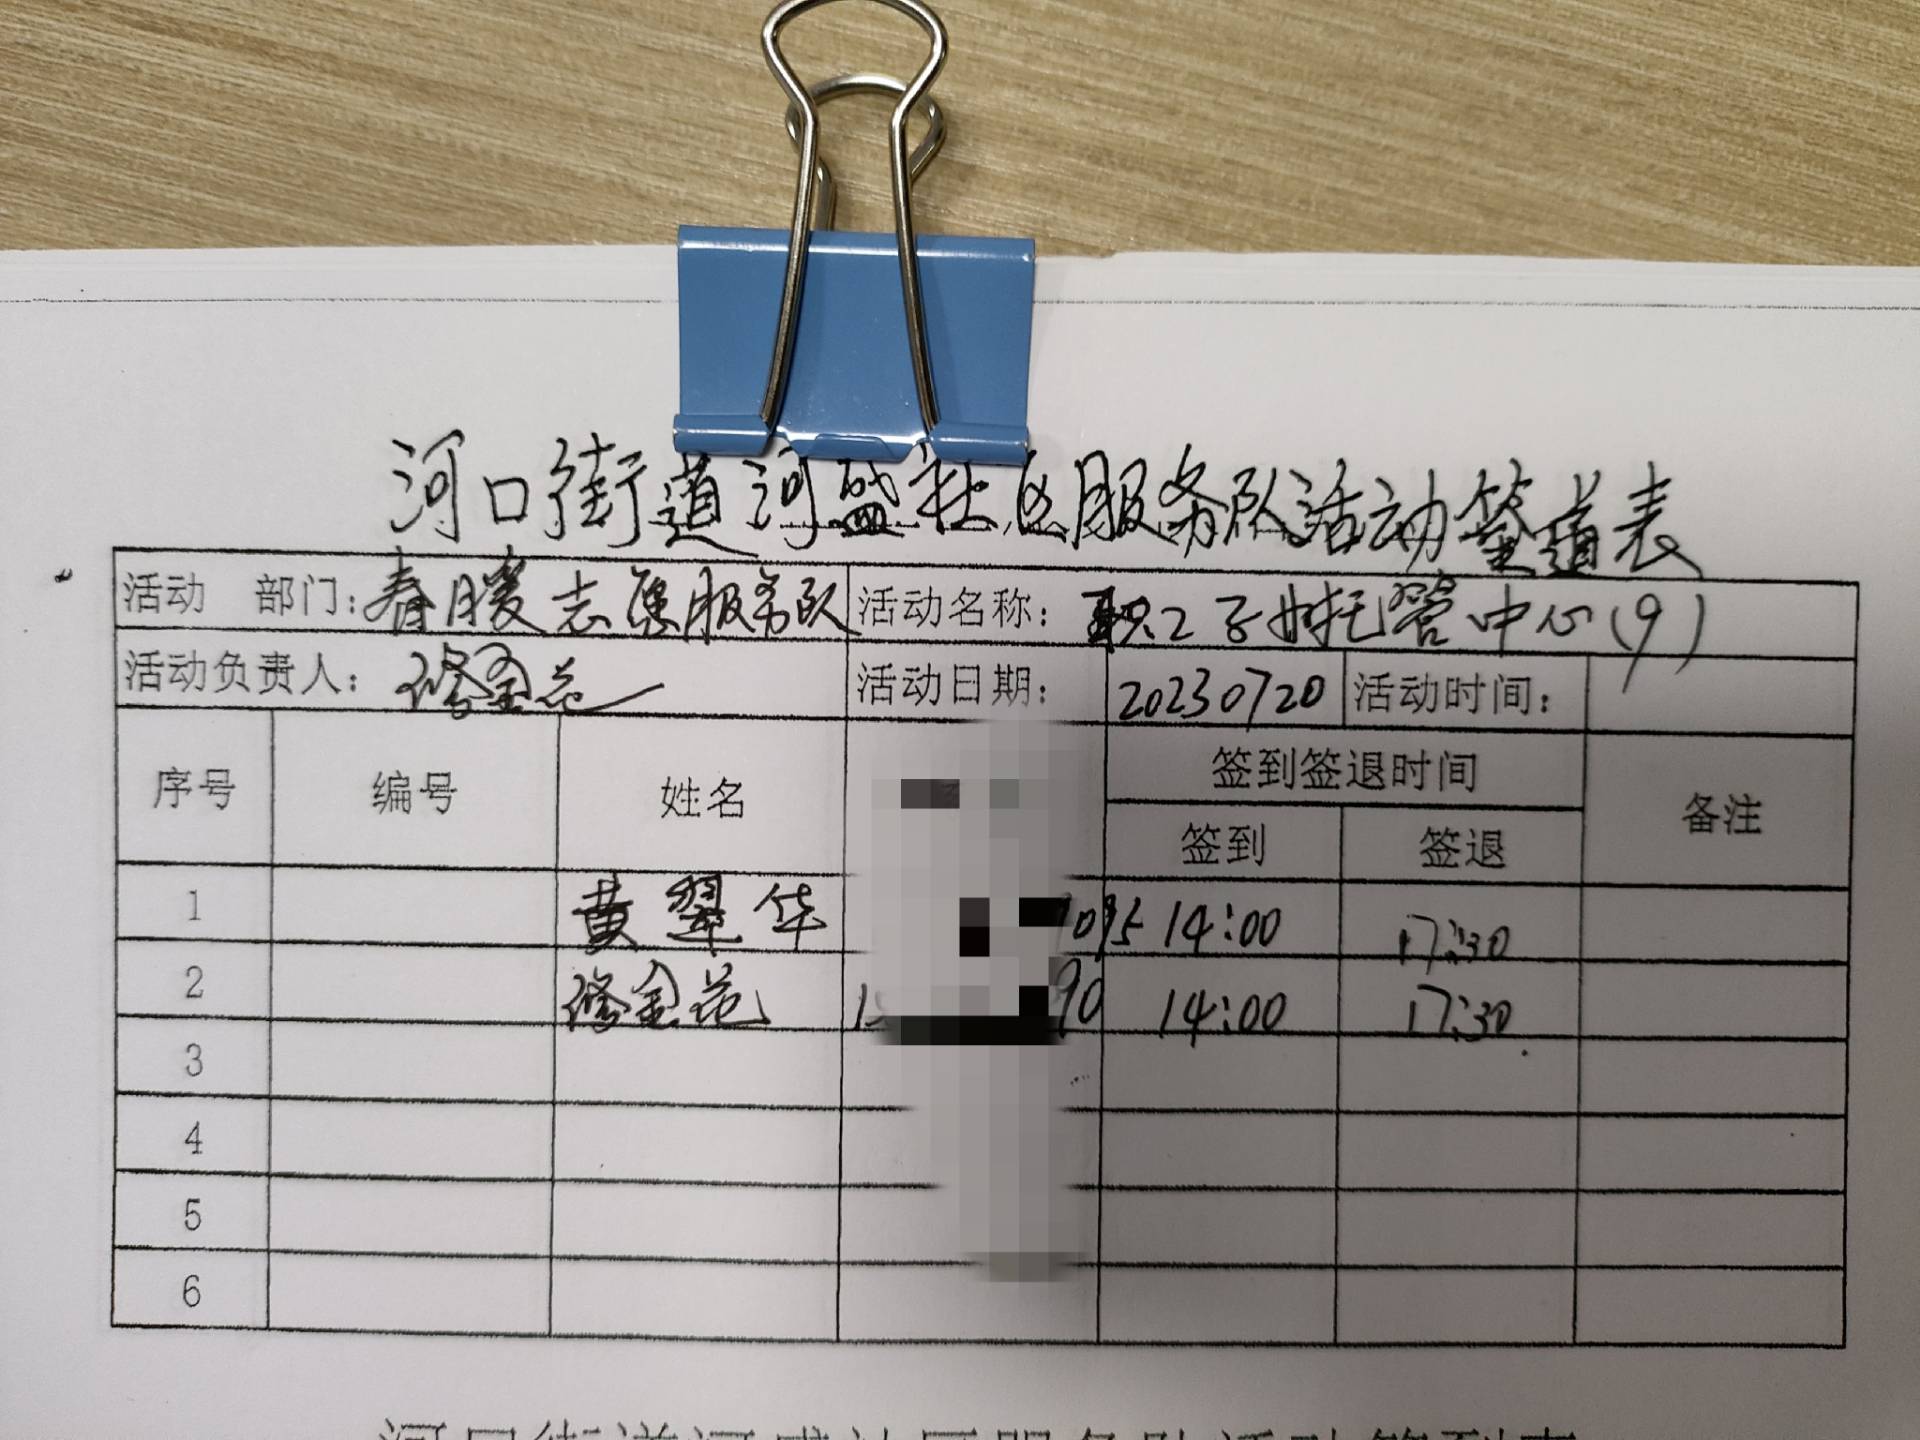 河口街道河盛社区服务队活动签道表
活动 部门：春暖志愿服务队 活动名称：职工子女托管中心(9)
活动负责人：修金花 活动日期：20230720 活动时间：
序号 编号 姓名 签到签退时间 备注
签到 签退
1 黄翠华 14:00 17:30
2 修金花 90 14:00 17:30
3
4
5
6